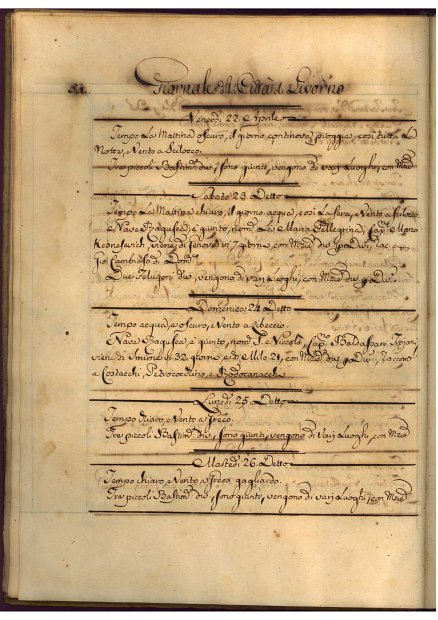 54. Giornale della Città di Livorno
Venerdì 22 Aprile
Tempo La Mattina oscuro, il giorno continova pioggia, così tutta La
Notte, Vento a Scilocco.
Tre piccoli Bastim.ti div.i sono giunti, vengono di varij Luoghi con Merd.
Sabato 23 Detto
Tempo La Mattina chiaro, il giorno acqua, così La sera, e Vento a scilocco
e Nave Ragusea è giunto, nom.ta La Maria Pellegrina, Cap. Marco
viene di in 7 giorni, con Merd. div. p Div.i, rac
Cambiaso
Due Feluconi div.i, vengono di varij Luoghi, con Merd. div. p Div.i
Domenica 24 Detto
Tempo acqua, e oscuro, Vento a Libeccio.
Nave Ragusea è giunto, nom. S. Niccolò, Cap. Baldassare
viene di Smirne in 32 giorni e di Milo 21, con Merd. div. p Div.i, racom.
a Costacchi, Petrococchino, e Rodocanacchi
Lunedì 25 Detto
Tempo chiaro, e Vento a Greco.
Tre piccoli Bastim.ti div.i sono giunti, vengono di varij Luoghi, con Merd.
Martedì 26 Detto
Tempo chiaro, e Vento a Greco gagliardo.
Tre piccoli Bastim.ti div.i sono giunti, vengono di varij Luoghi, con Merd.